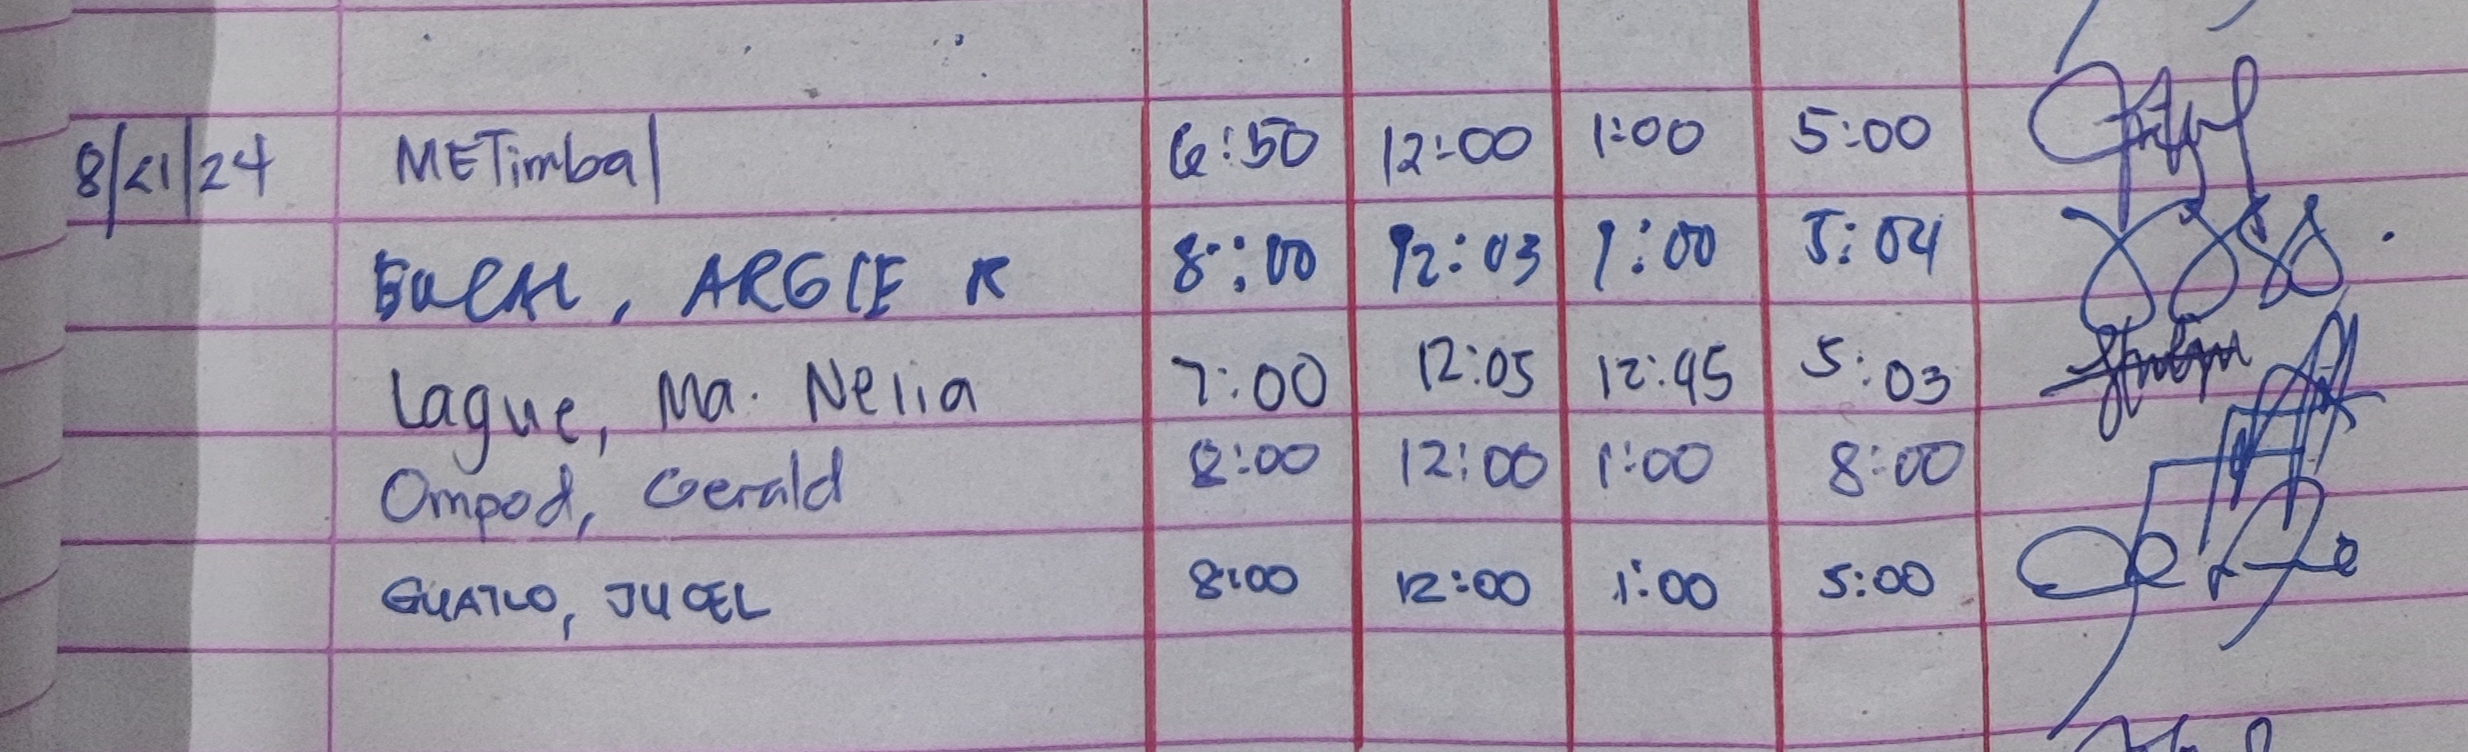 8/21/24 METimbal 6:50 12:00 1:00 5:00
ARGIE R 8:00 12:03 1:00 5:04
Lague, Ma. Nelia 7:00 12:05 12:45 5:03
Ompod, Gerald 8:00 12:00 1:00 8:00
GUATLO, JUCEL 8:00 12:00 1:00 5:00